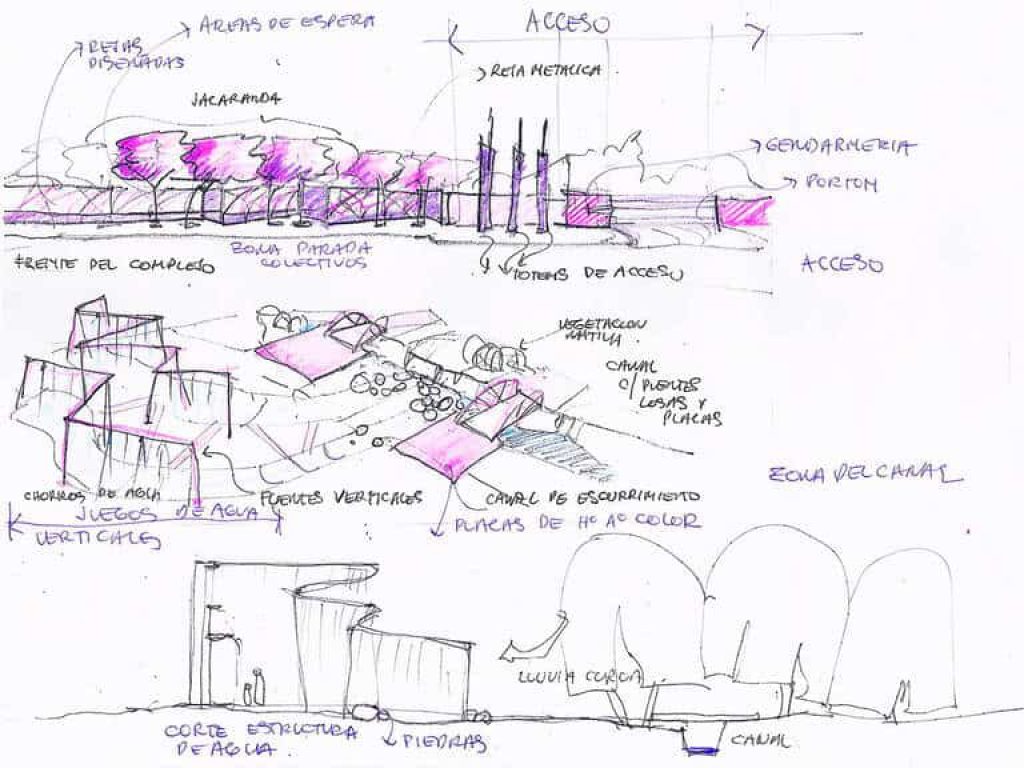 AREAS DE ESPERA
ACCESO
REJAS
DISEÑADAS
REJA METALICA
JACARANDA
GENDARMERIA
PORTON
ZONA PARADA
COLECTIVOS
FRENTE DEL COMPLEJO
TOTEMS DE ACCESO
ACCESO
VEGETACION
NATIVA
CANAL
C/ PUENTES
LOSAS Y
PLACAS
ZONA DEL CANAL
CHORROS DE AGUA
FUENTES VERTICALES
CANAL DE ESCURRIMIENTO
JUEGOS DE AGUA
VERTICALES
PLACAS DE Hº Aº COLOR
LLUVIA CURCIA
CORTE ESTRUCTURA
DE AGUA.
PIEDRAS
CANAL